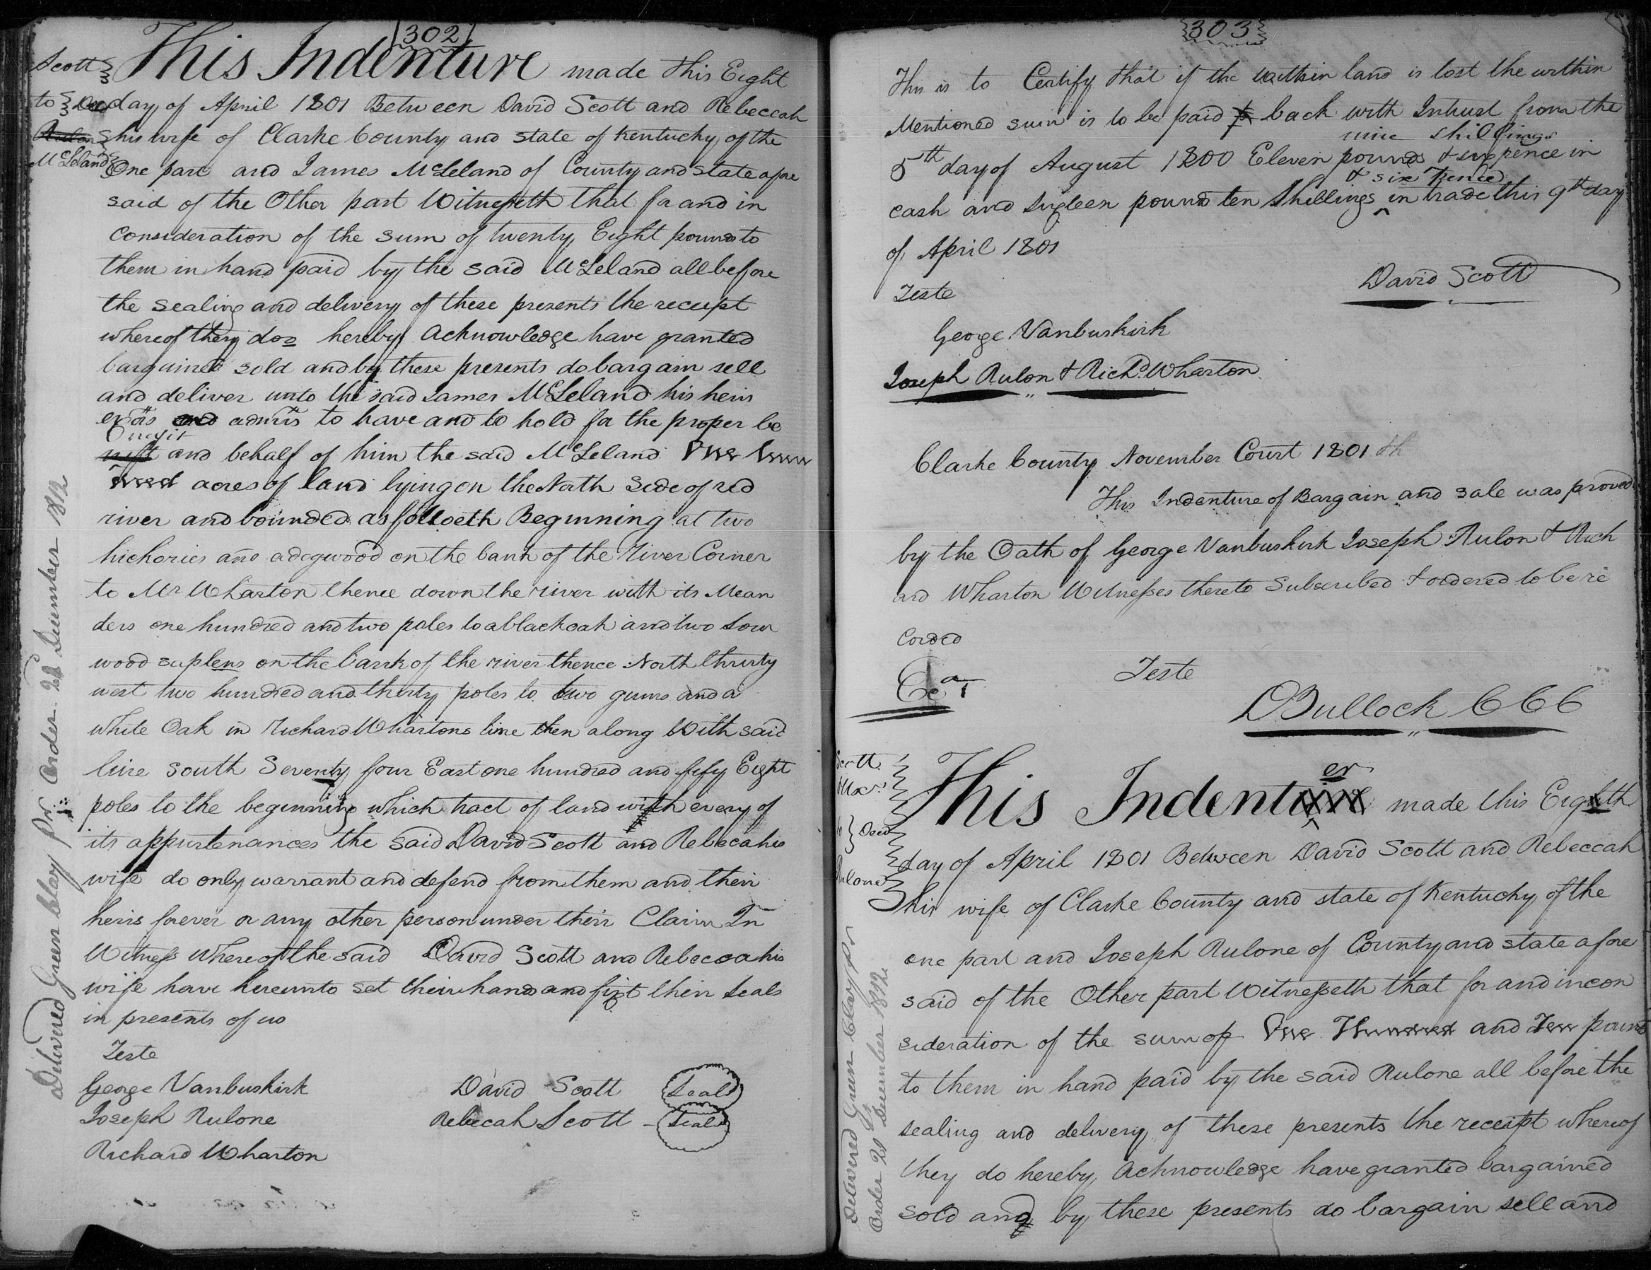 302
Scott
to Deed
McLeland
This Indenture made this Eight
day of April 1801 Between David Scott and Rebeccah
his wife of Clarke County and state of Kentucky of the
One part and James McLeland of County and state afore
said of the Other part Witnesseth that for and in
consideration of the sum of twenty Eight pounds to
them in hand paid by the said McLeland all before
the sealing and delivery of these presents the receipt
whereof they doo hereby Acknowledge have granted
bargained sold and by these presents do bargain sell
and deliver unto the said James McLeland his heirs
exrs and admrs to have and to hold for the proper be
nefit and behalf of him the said McLeland One Hund
acres of land lying on the North Side of red
river and bounded as followeth Beginning at two
hickories and a dogwood on the bank of the River Corner
to Mr Wharton thence down the river with its Mean
ders one hundred and two poles to a black oak and two sour
wood saplens on the bank of the river thence North thirty
west two hundred and thirty poles to two gums and a
white Oak in Richard Whartons line then along with said
line south Seventy four East one hundred and fify Eight
poles to the beginning which tract of land with every of
its appurtenances the said David Scott and Rebecah his
wife do only warrant and defend from them and their
heirs forever or any other person under their Claim In
Witness Whereof the said David Scott and Rebeccah his
wife have hereunto set their hands and fixt their seals
in presents of us
Teste
George Vanbuskirk David Scott Seal
Joseph Rulone Rebecah Scott Seal
Richard Wharton
Delivered Green Clay pr. Order 2d December 1812
303
This is to Certify that if the within land is lost the within
Mentioned sum is to be paid back with Intrust from the
nine shillings
5th day of August 1800 Eleven pounds & six pence in
& six Pence
cash and Sixteen pound ten Shillings in trade this 9th day
of April 1801
David Scott
Teste
George Vanbuskirk
Joseph Rulon & Richd Wharton
Clarke County November Court 1801
This Indenture of Bargain and sale was proved
by the Oath of George Vanbuskirk Joseph Rulon & Rich
ard Wharton Witnesses thereto Subscribed & ordered to be re
corded
Teste
DBullock CCC
Scott
to Deed
Rulone
This Indenter made this Eighth
day of April 1801 Between David Scott and Rebeccah
his wife of Clarke County and state of Kentucky of the
one part and Joseph Rulone of County and state afore
said of the Other part Witnesseth that for and in con
sideration of the sum of One Hundred and Ten pound
to them in hand paid by the said Rulone all before the
sealing and delivery of these presents the receipt whereof
they do hereby Acknowledge have granted bargained
sold and by these presents do bargain sell and
Delivered Green Clay pr
Order 2d December 1812